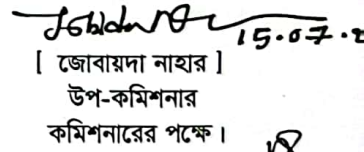 15.07.
[ জোবায়দা নাহার ]
উপ-কমিশনার
কমিশনারের পক্ষে।